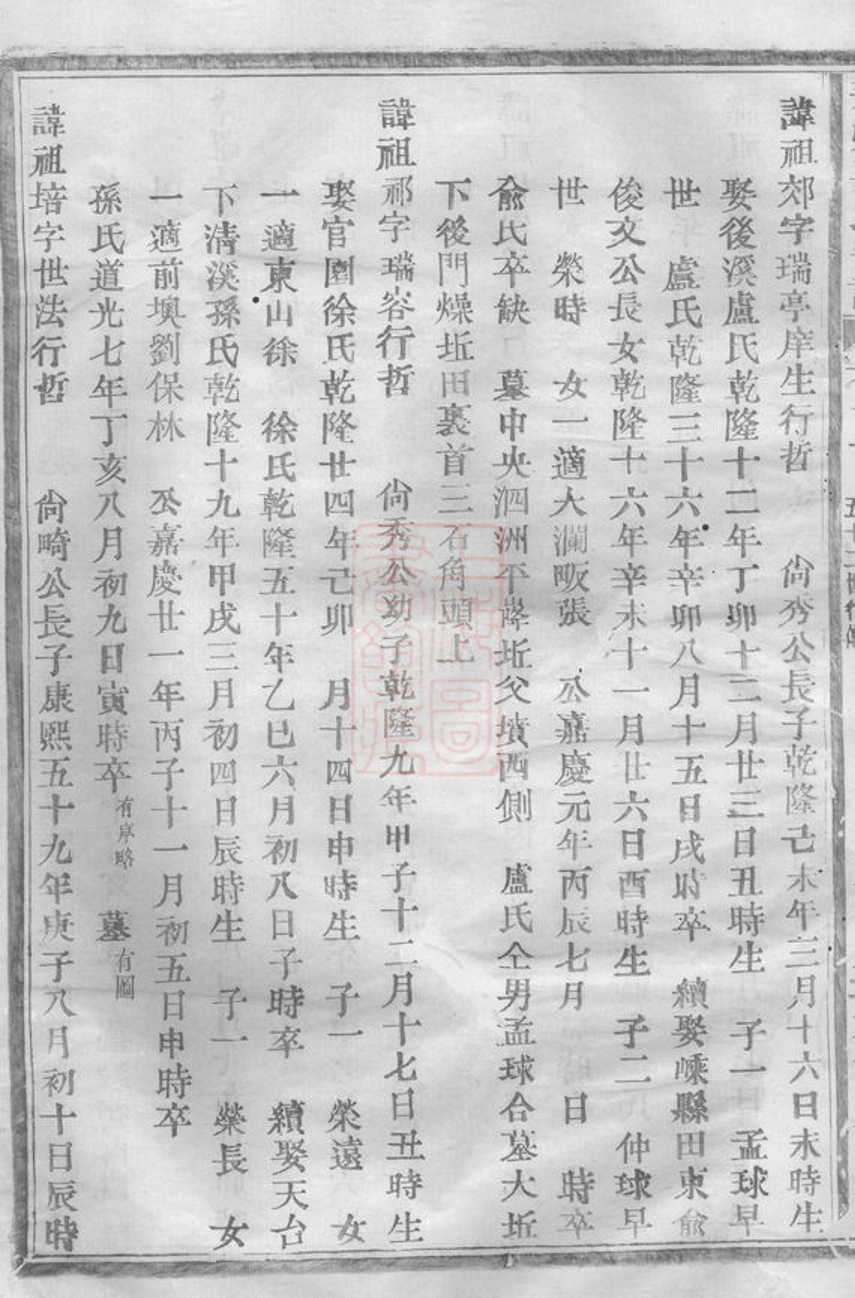 五十二世行傳
諱祖郊字瑞亭庠生行哲　尙秀公長子乾隆己未年三月十六日未時生
娶後溪盧氏乾隆十二年丁卯十二月廿三日丑時生　子一　孟球早
世　盧氏乾隆三十六年辛卯八月十五日戌時卒　續娶嵊縣田東兪
俊文公長女乾隆十六年辛未十一月廿六日酉時生　子二　仲球早
世　榮時　女一適大瀾畈張　公嘉慶元年丙辰七月　日　時卒
兪氏卒缺　墓中央泗洲平㘵坵父墳西側　盧氏仝男孟球合墓大坵
下後門燥坵田裏首三石角頭上
諱祖祁字瑞容行哲　尙秀公幼子乾隆九年甲子十二月十七日丑時生
娶官園徐氏乾隆廿四年己卯　月十四日申時生　子一　榮遠　女
一適東山徐　徐氏乾隆五十年乙巳六月初八日子時卒　續娶天台
下淸溪孫氏乾隆十九年甲戌三月初四日辰時生　子一　榮長　女
一適前墺劉保林　公嘉慶廿一年丙子十一月初五日申時卒
孫氏道光七年丁亥八月初九日寅時卒　有序略　墓有圖
諱祖培字世法行哲　尙畸公長子康熙五十九年庚子八月初十日辰時